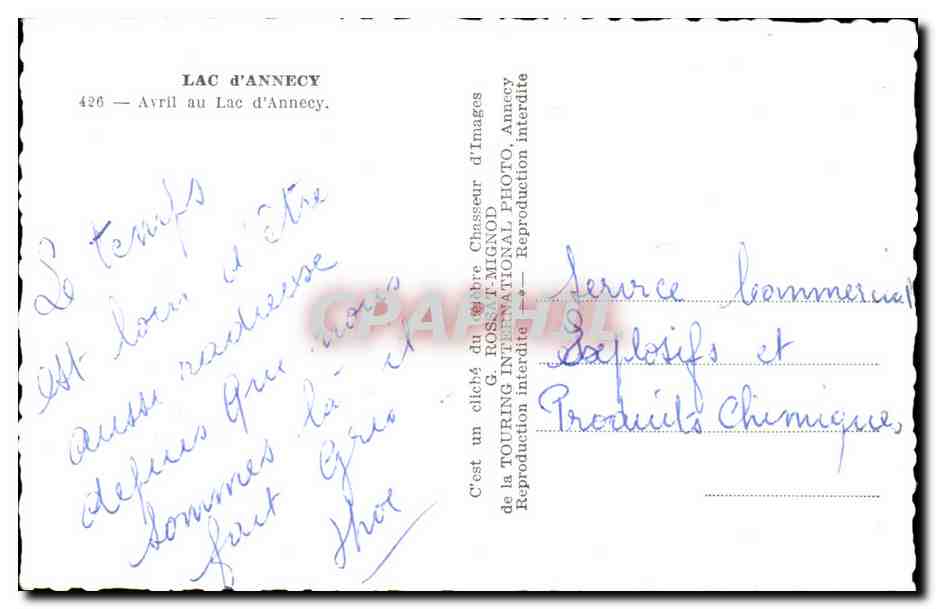 LAC d'ANNECY
426 — Avril au Lac d'Annecy.
Le temps
est loin d'être
aussi radieuse
depuis que nous
sommes là - il
fait Gris -
C'est un cliché du célèbre Chasseur d'Images
G. ROSSAT-MIGNOD
de la TOURING INTERNATIONAL PHOTO, Annecy
Reproduction interdite —*— Reproduction interdite
Service Commercial
Explosifs et
Produits Chimiques
CPAPHIL